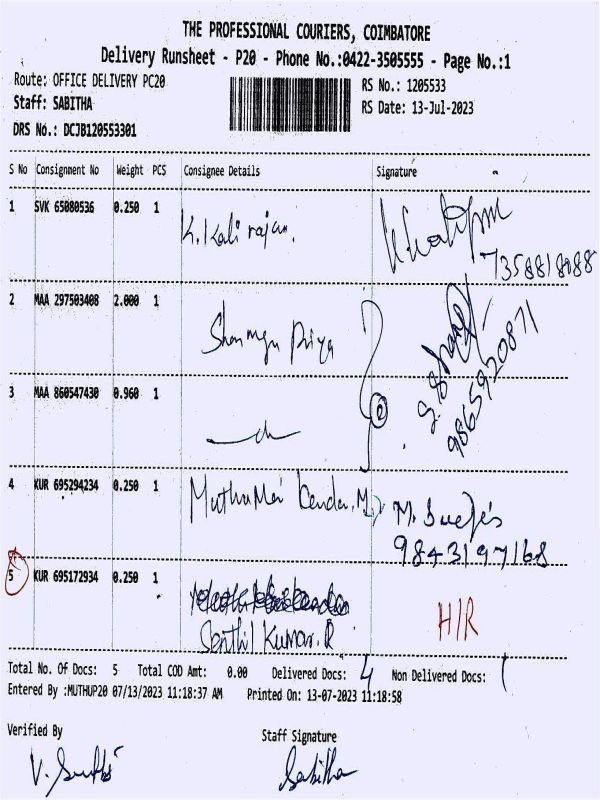 THE PROFESSIONAL COURIERS, COIMBATORE
Delivery Runsheet - P20 - Phone No.:0422-3505555 - Page No.:1
Route: OFFICE DELIVERY PC20
RS No.: 1205533
Staff: SABITHA
RS Date: 13-Jul-2023
DRS No.: DCJB120553301
S No Consignment No Weight PCS Consignee Details Signature
1 SVK 65080536 0.250 1 K. Kali rajan.
7358818088
2 MAA 297503408 2.000 1 Shanmuga Priya
9865920871
3 MAA 860547430 0.960 1
2
4 KUR 695294234 0.250 1 Muthumai
9843197168
5 KUR 695172934 0.250 1
Senthil Kumar. R H/R
Total No. Of Docs: 5 Total COD Amt: 0.00 Delivered Docs: 4 Non Delivered Docs: 1
Entered By :MUTHUP20 07/13/2023 11:18:37 AM Printed On: 13-07-2023 11:18:58
Verified By Staff Signature
Sabitha